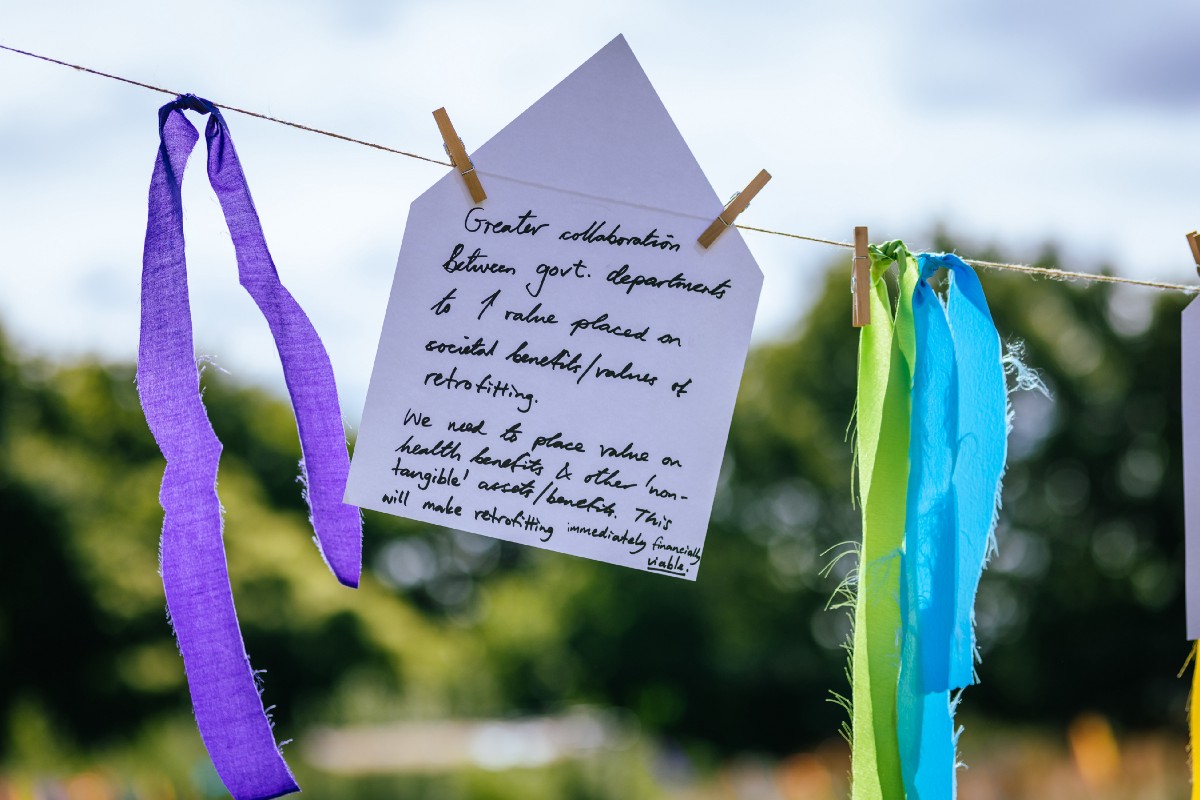 Greater collaboration
Between govt. departments
to ↑ value placed on
societal benefits/values of
retrofitting.
We need to place value on
health benefits & other 'non-
tangible' assets/benefits. This
will make retrofitting immediately financially
viable.